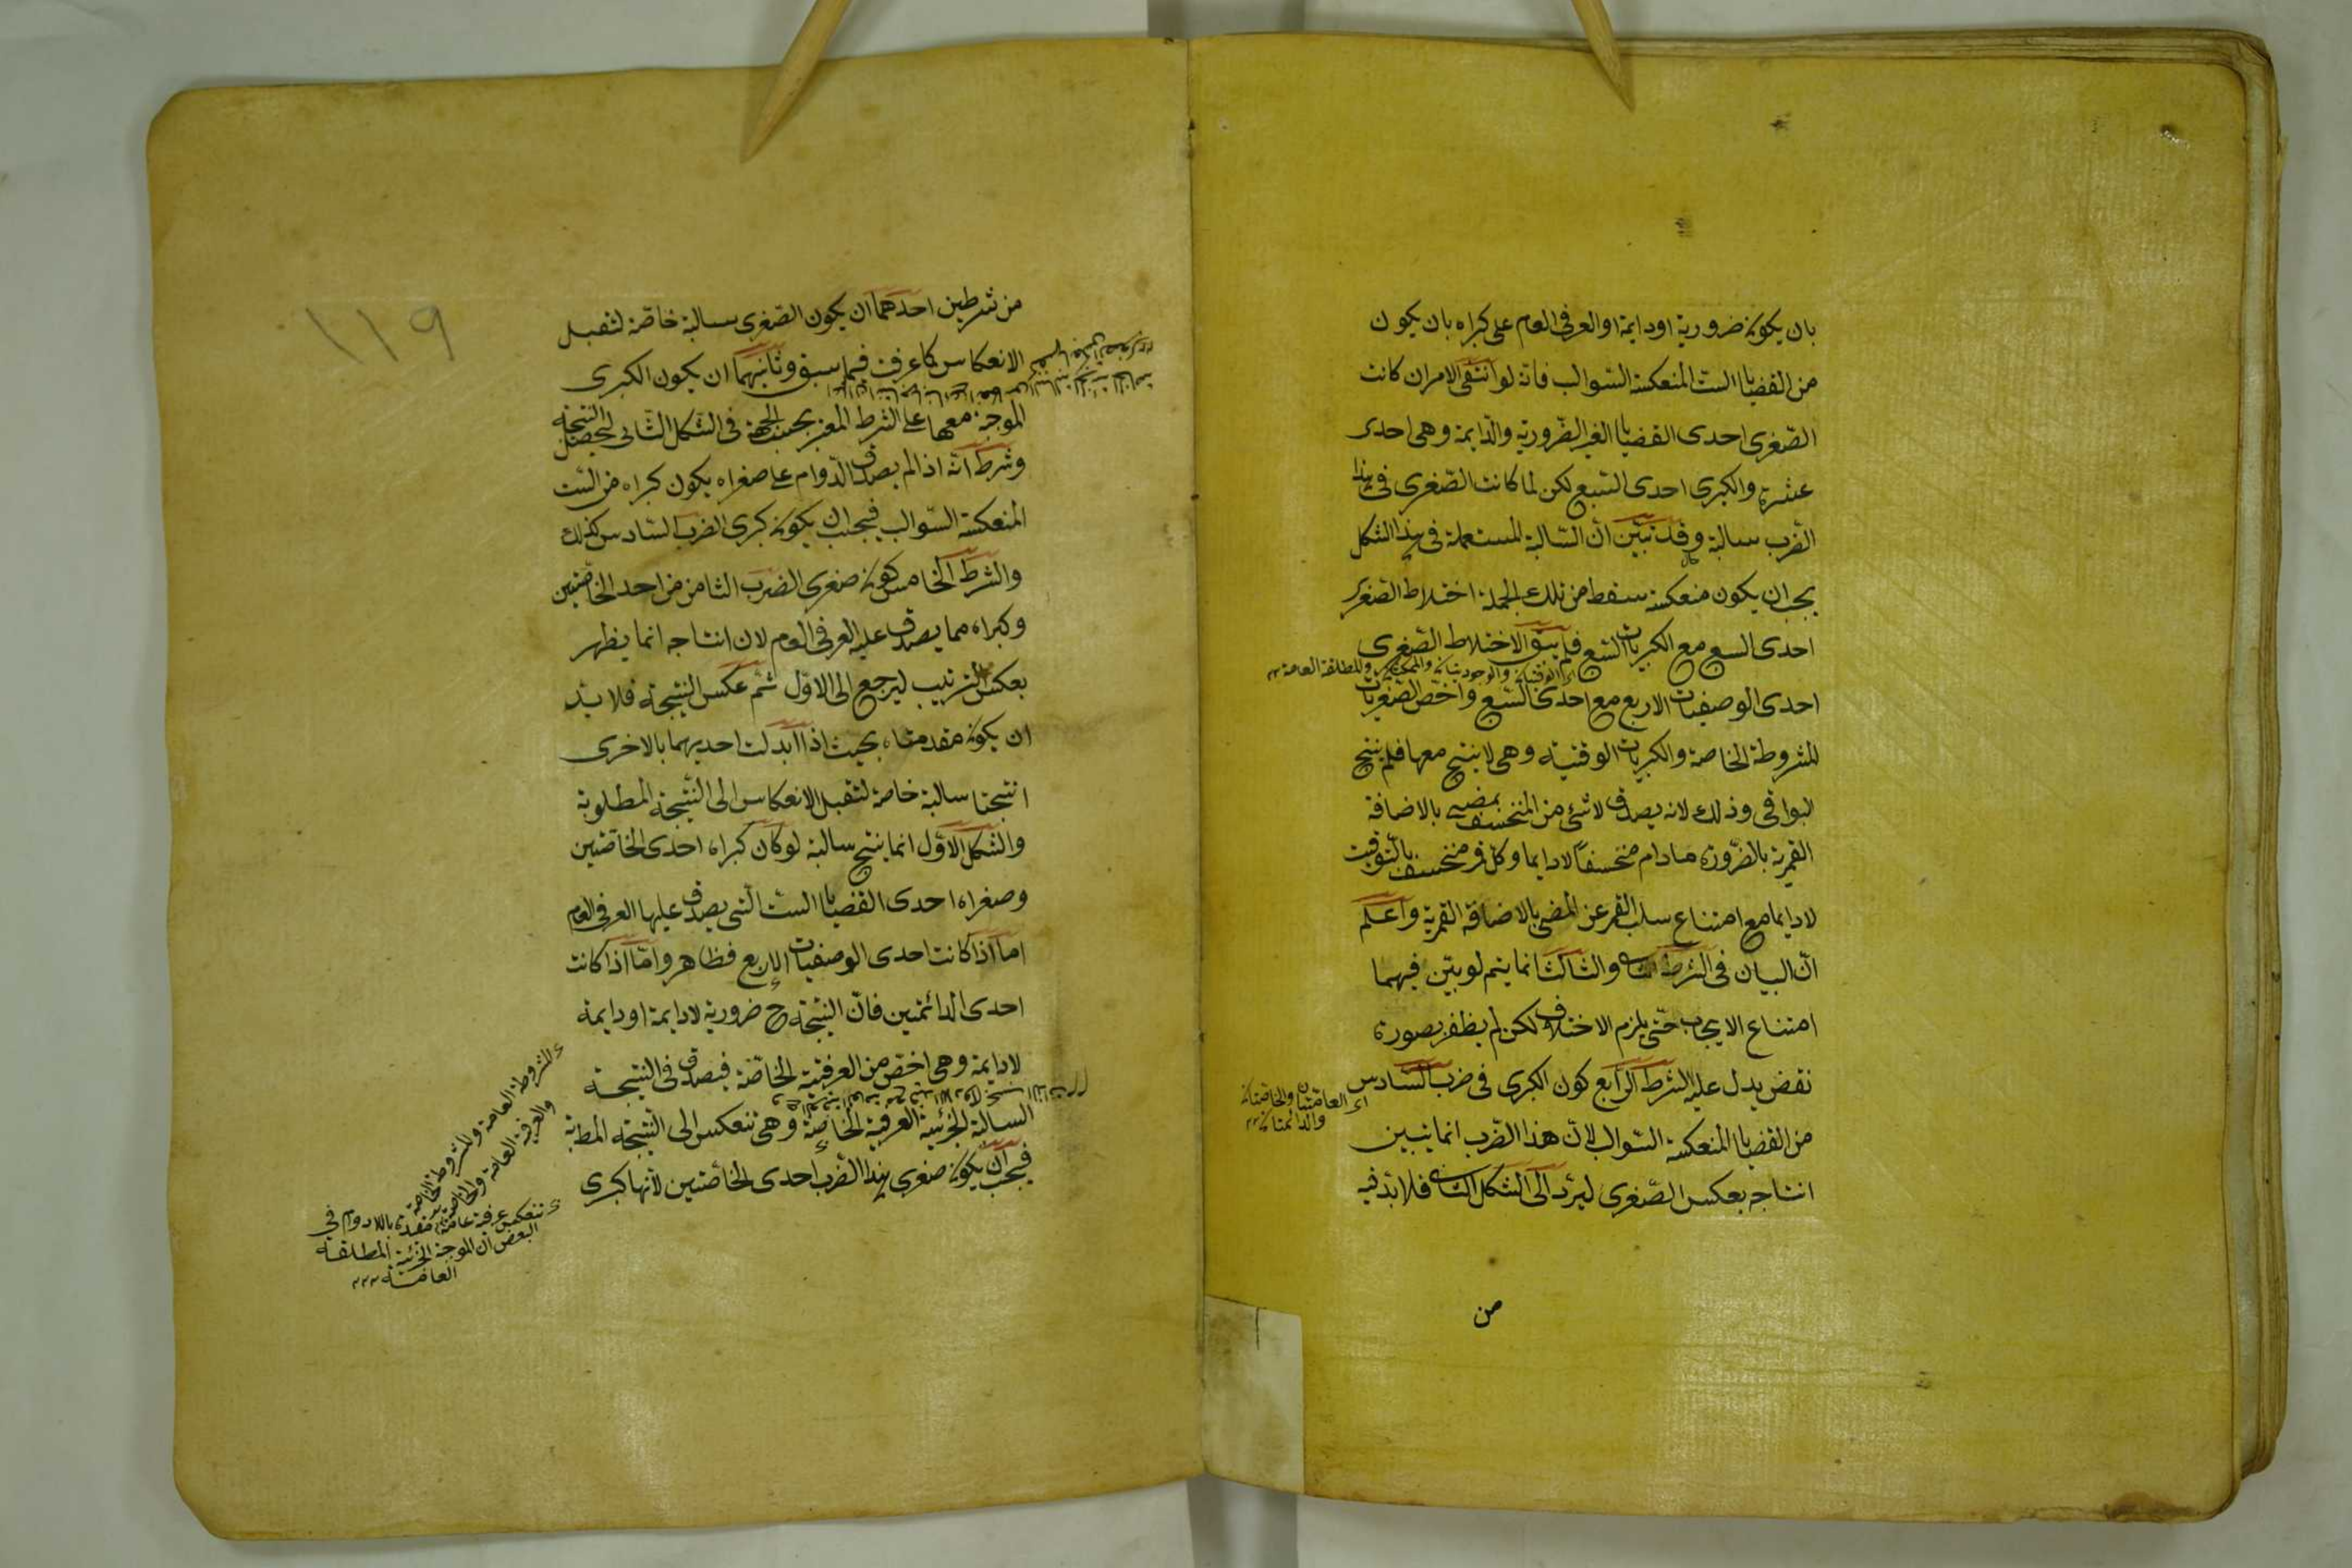 بان يكون ضرورية او دايمة او العرفى العام على كبراه بان يكون
من القضايا الست المنعكسة السوالب فانه لو انتفى الامران كانت
الصغرى احدى القضايا الغير الضرورية والدايمة وهى احدى
عشرة والكبرى احدى السبع لكن لما كانت الصغرى فى هذا
الضرب سالبة وقد تبين ان السالبة المستعملة فى هذا الشكل
يجب ان يكون منعكسة سقط من تلك الجملة اختلاط الصغرى
احدى السبع مع الكبريات السبع فلم يبق الا اختلاط الصغرى
اى الوقتيتان والوجوديتان والممكنتان والمطلقة العامة
احدى الوصفيات الاربع مع احدى السبع واخص الصغريات
المشروطة الخاصة والكبريات الوقتية وهى لا ينتج معها فلم ينتج
البواقى وذلك لانه يصدق لا شئ من المنخسف بمضيى بالاضافة
القمرية بالضرورة مادام منخسفا لا دايما وكل قمر منخسف بالتوقيت
لا دايما مع امتناع سلب القمر عن المضيى بالاضافة القمرية واعلم
ان البيان فى الشرط الثانى والثالث انما يتم لو بين فيهما
امتناع الايجاب حتى يلزم الاختلاف لكن لم يظفر بصورة
نقض يدل عليه الشرط الرابع كون الكبرى فى ضرب السادس
اى العامتان والخاصتان
والدائمتان
من القضايا المنعكسة السوالب لان هذا الضرب انما يتبين
انتاجه بعكس الصغرى ليرد الى الشكل الثانى فلا بد فيه
من
١١٩
من شرطين احدهما ان يكون الصغرى سالبة خاصة لتقبل
الانعكاس كما عرفت فيما سبق وثانيهما ان يكون الكبرى
الموجبة معها على الشرط المعتبر بحسب الجهة فى الشكل الثانى ليحصل النتيجة
وشرط انه اذا لم يصدق الدوام على صغراه يكون كبراه من الست
المنعكسة السوالب فيجب ان يكون كبرى الضرب السادس كذلك
والشرط الخامس كون صغرى الضرب الثامن من احد الخاصتين
وكبراه مما يصدق عليه العرفى العام لان انتاجه انما يظهر
بعكس الترتيب ليرجع الى الاول ثم عكس النتيجة فلا بد
ان يكون مقدمتاه بحيث اذا ابدلت احديهما بالاخرى
انتجتا سالبة خاصة لتقبل الانعكاس الى النتيجة المطلوبة
والشكل الاول انما ينتج سالبة لو كان كبراه احدى الخاصتين
وصغراه احدى القضايا الست التى يصدق عليها العرفى العام
اما اذا كانت احدى الوصفيات الاربع فظاهر واما اذا كانت
احدى الدائمتين فان النتيجة ح ضرورية لا دايمة او دايمة
لا دايمة وهى اخص من العرفية الخاصة فيصدق فى النتيجة
السالبة الجزئية العرفية الخاصة وهى تنعكس الى النتيجة المطبة
فيجب ان يكون صغرى هذا الضرب احدى الخاصتين لانها كبرى
المشروطة العامة والمشروطة الخاصة
والعرفية العامة والخاصة
تنعكس عرفية عامة مقيدة باللادوام فى
البعض ان الموجبة الجزئية المطلقة
العامة